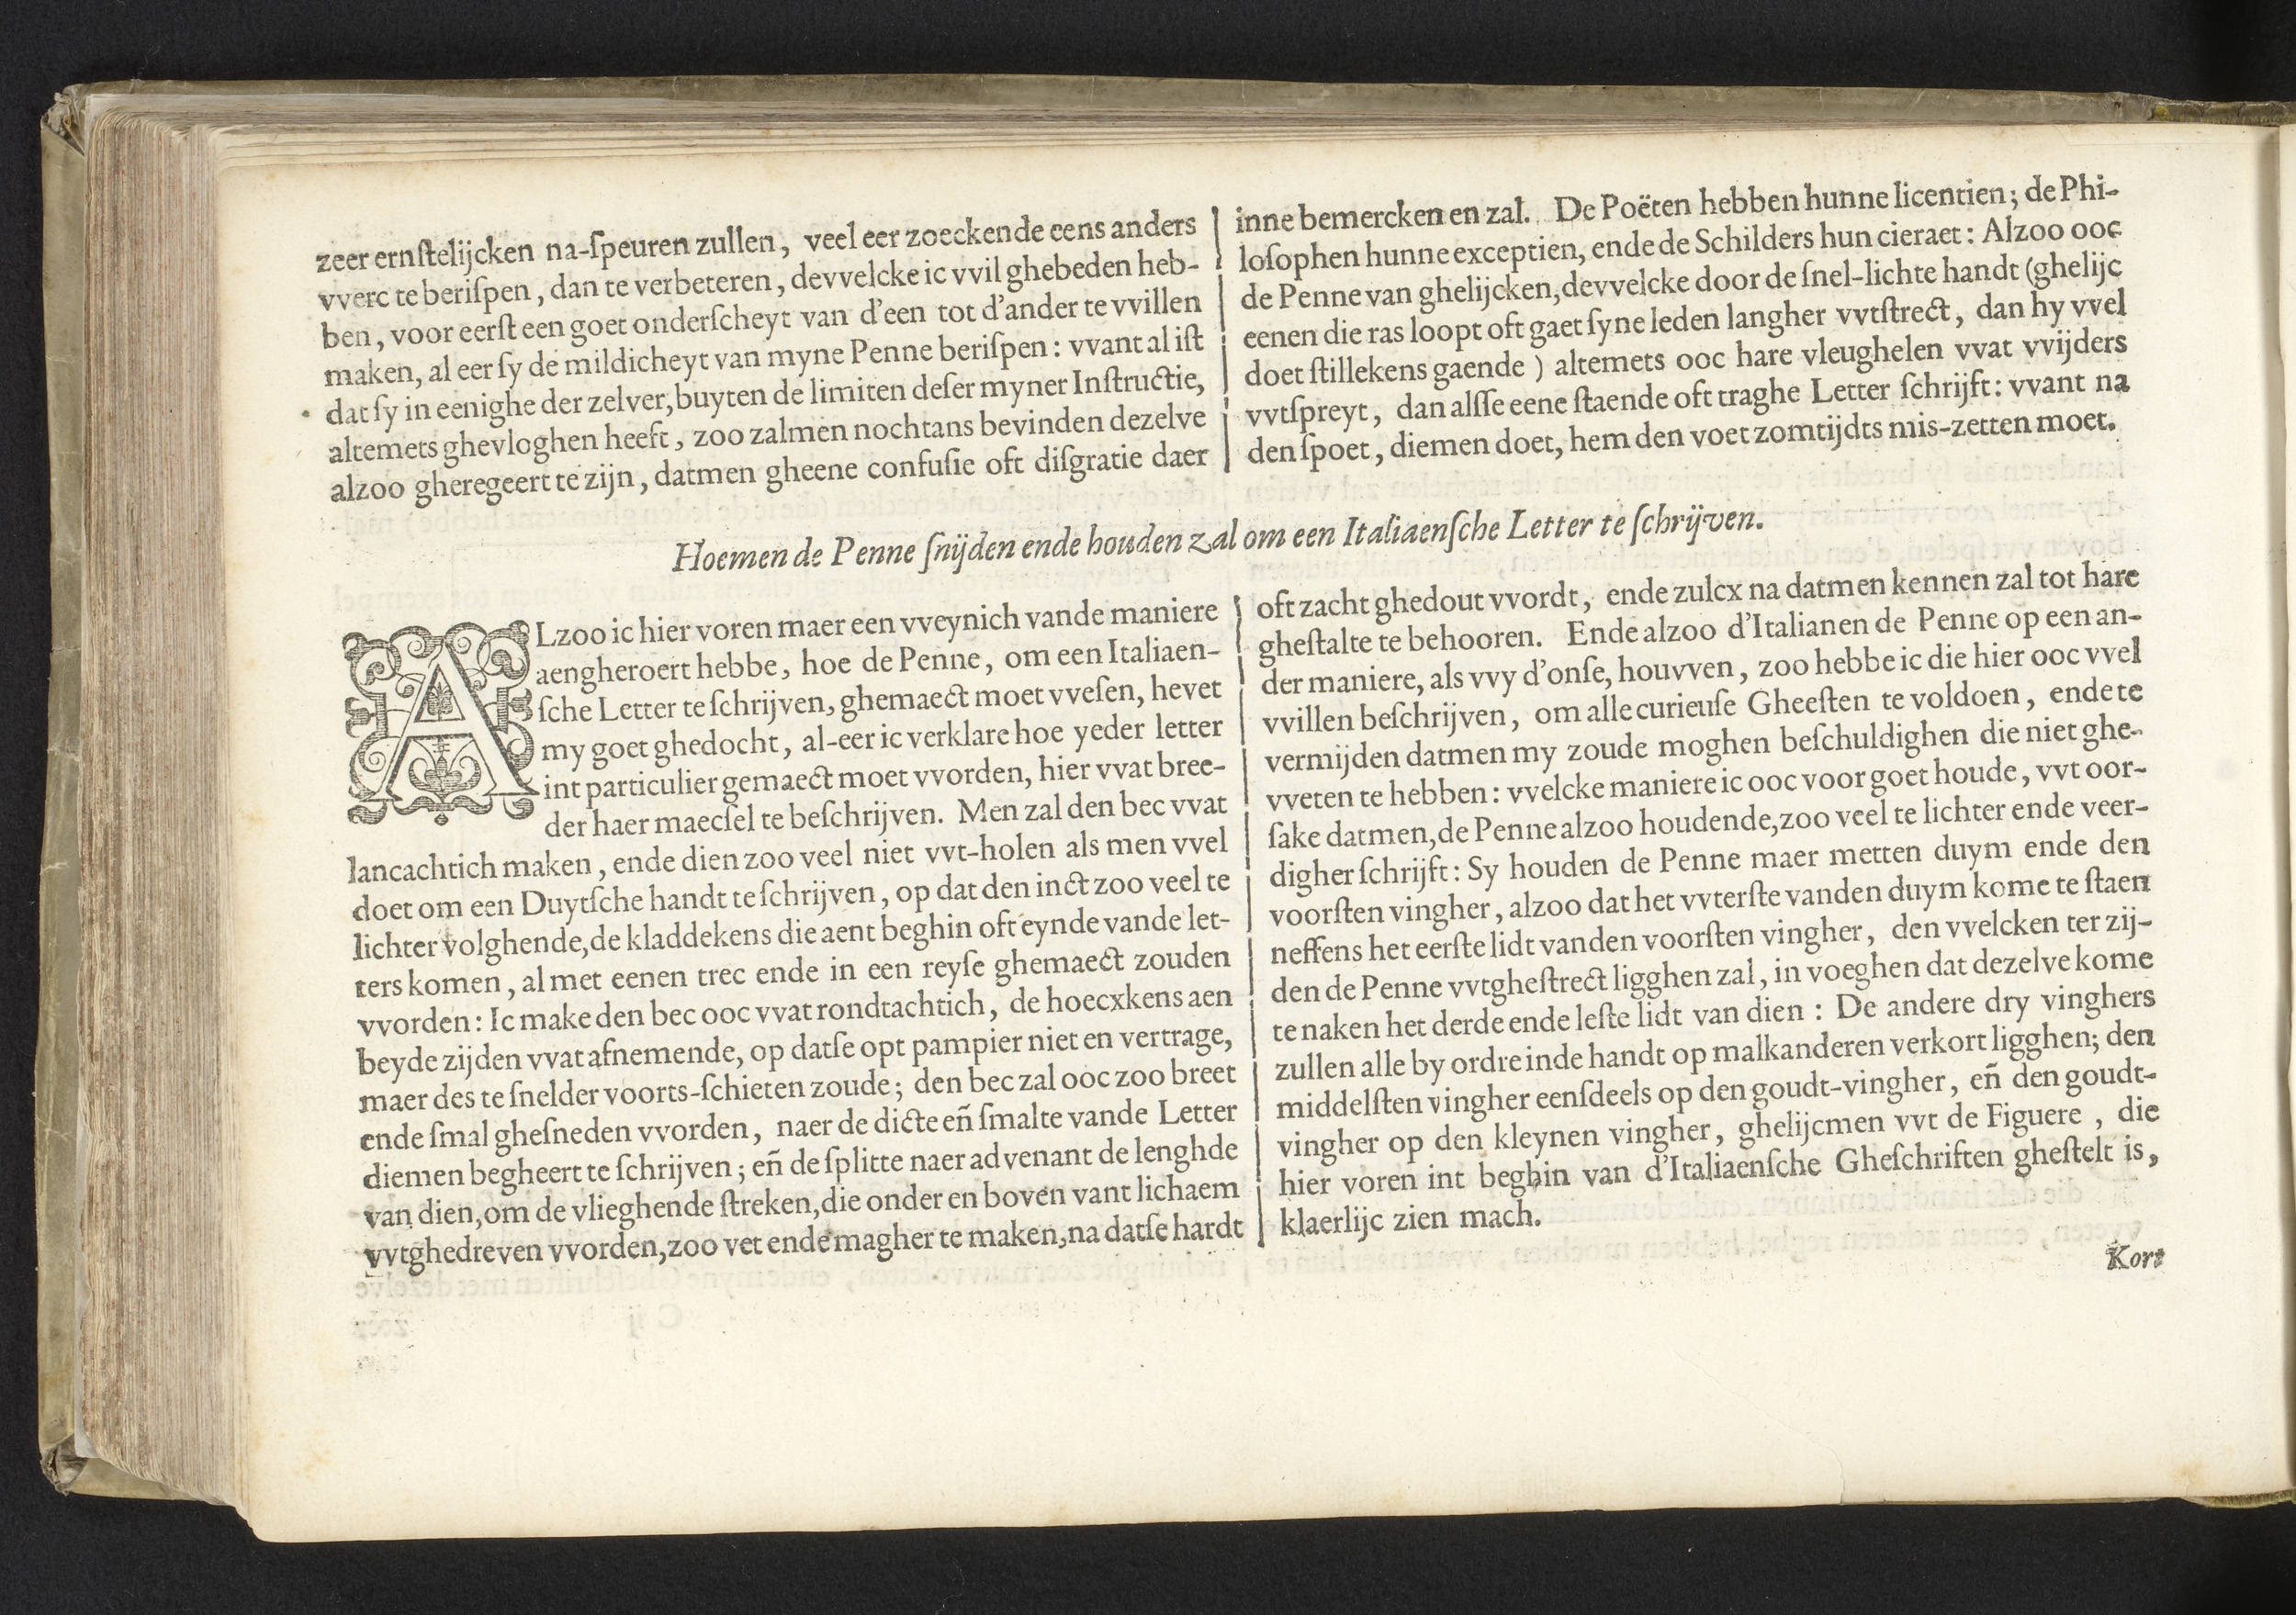 zeer ernſtelijcken na-ſpeuren zullen, veel eer zoeckende eens anders
vverc te beriſpen, dan te verbeteren, devvelcke ic vvil ghebeden heb-
ben, voor eerſt een goet onderſcheyt van d'een tot d'ander te vvillen
maken, al eer ſy de mildicheyt van myne Penne beriſpen: vvant al iſt
dat ſy in eenighe der zelver, buyten de limiten deſer myner Inſtructie,
altemets ghevloghen heeft, zoo zalmen nochtans bevinden dezelve
alzoo gheregeert te zijn, datmen gheene confuſie oft diſgratie daer
inne bemercken en zal. De Poëten hebben hunne licentien; de Phi-
loſophen hunne exceptien, ende de Schilders hun cieraet: Alzoo ooc
de Penne van ghelijcken, devvelcke door de ſnel-lichte handt (ghelijc
eenen die ras loopt oft gaet ſyne leden langher vvtſtrect, dan hy vvel
doet ſtillekens gaende) altemets ooc hare vleughelen vvat vvijders
vvtſpreyt, dan alſſe eene ſtaende oft traghe Letter ſchrijft: vvant na
den ſpoet, diemen doet, hem den voet zomtijdts mis-zetten moet.
Hoemen de Penne ſnijden ende houden zal om een Italiaenſche Letter te ſchrijven.
ALzoo ic hier voren maer een vveynich vande maniere
aengheroert hebbe, hoe de Penne, om een Italiaen-
ſche Letter te ſchrijven, ghemaect moet vveſen, hevet
my goet ghedocht, al-eer ic verklare hoe yeder letter
int particulier gemaect moet vvorden, hier vvat bree-
der haer maecſel te beſchrijven. Men zal den bec vvat
lancachtich maken, ende dien zoo veel niet vvt-holen als men vvel
doet om een Duytſche handt te ſchrijven, op dat den inct zoo veel te
lichter volghende, de kladdekens die aent beghin oft eynde vande let-
ters komen, al met eenen trec ende in een reyſe ghemaect zouden
vvorden: Ic make den bec ooc vvat rondtachtich, de hoecxkens aen
beyde zijden vvat afnemende, op datſe opt pampier niet en vertrage,
maer des te ſnelder voorts-ſchieten zoude; den bec zal ooc zoo breet
ende ſmal gheſneden vvorden, naer de dicte en̄ ſmalte vande Letter
diemen begheert te ſchrijven; en̄ de ſplitte naer advenant de lenghde
van dien, om de vlieghende ſtreken, die onder en boven vant lichaem
vvtghedreven vvorden, zoo vet ende magher te maken, na datſe hardt
oft zacht ghedout vvordt, ende zulcx na datmen kennen zal tot hare
gheſtalte te behooren. Ende alzoo d'Italianen de Penne op een an-
der maniere, als vvy d'onſe, houvven, zoo hebbe ic die hier ooc vvel
vvillen beſchrijven, om alle curieuſe Gheeſten te voldoen, ende te
vermijden datmen my zoude moghen beſchuldighen die niet ghe-
vveten te hebben: vvelcke maniere ic ooc voor goet houde, vvt oor-
ſake datmen, de Penne alzoo houdende, zoo veel te lichter ende veer-
digher ſchrijft: Sy houden de Penne maer metten duym ende den
voorſten vingher, alzoo dat het vvterſte vanden duym kome te ſtaen
neffens het eerſte lidt vanden voorſten vingher, den vvelcken ter zij-
den de Penne vvtgheſtrect ligghen zal, in voeghen dat dezelve kome
te naken het derde ende leſte lidt van dien: De andere dry vinghers
zullen alle by ordre inde handt op malkanderen verkort ligghen; den
middelſten vingher eenſdeels op den goudt-vingher, en̄ den goudt-
vingher op den kleynen vingher, ghelijcmen vvt de Figuere, die
hier voren int beghin van d'Italiaenſche Gheſchriften gheſtelt is,
klaerlijc zien mach.
Kort